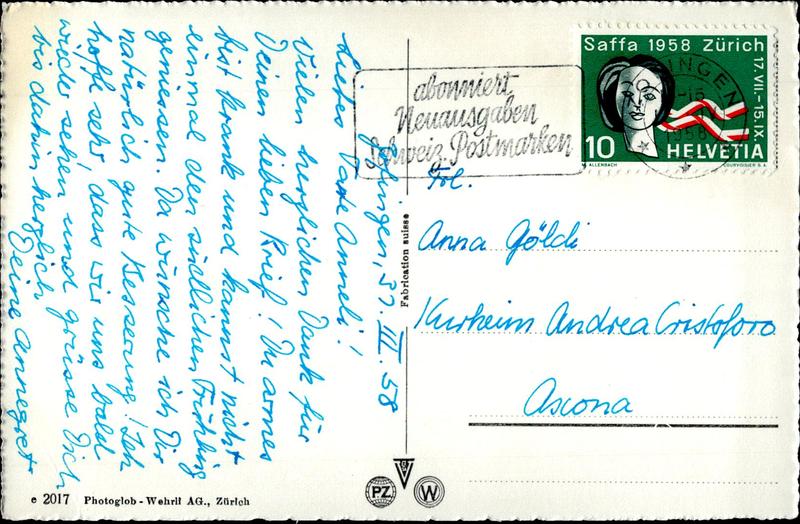 Zofingen, 31. III. 58
Liebes Vase Anneli!
Vielen herzlichen Dank für
Deinen lieben Brief! Du armes
bist krank und kannst nicht
einmal den südlichen Frühling
geniessen. Da wünsche ich Dir
natürlich gute Besserung! Ich
hoffe sehr dass wir uns bald
wieder sehen und grüsse Dich
bis dahin herzlich
Deine Annegret
abonniert
Neuausgaben
Schweiz. Postmarken
Saffa 1958 Zürich
17.VII.-15.IX.
10
HELVETIA
ALLENBACH
COURVOISIER S.A.
Frl.
Anna Göldi
Kurheim Andrea Cristoforo
Ascona
Fabrication suisse
e 2017 Photoglob - Wehrli AG., Zürich
PZ
W